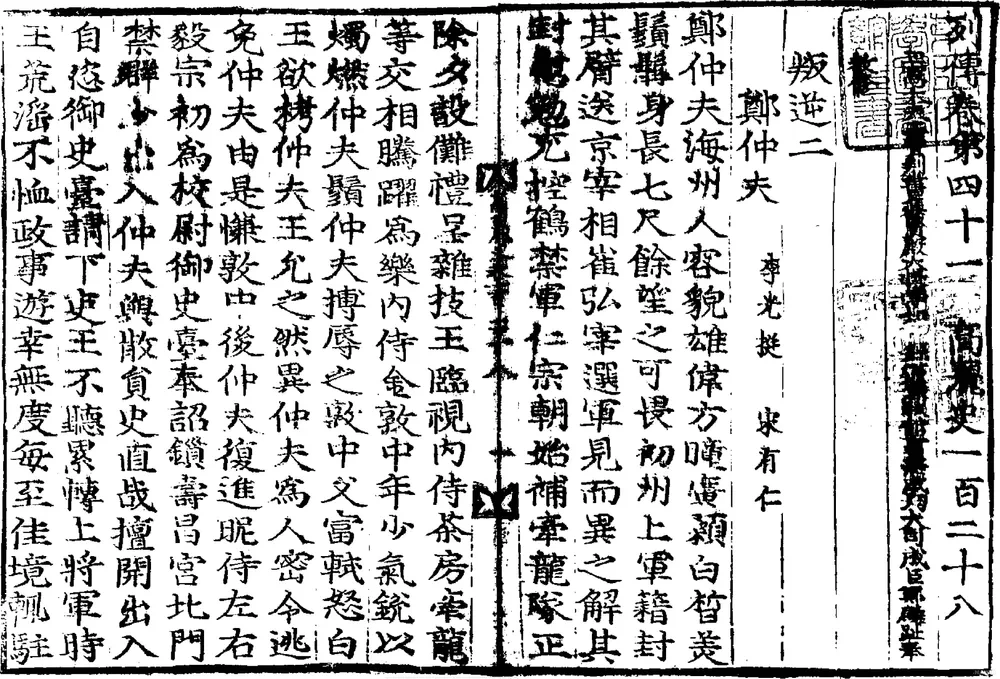 列傳卷第四十一 高麗史一百二十八
叛逆二
鄭仲夫 李光挺 宋有仁
鄭仲夫海州人容貌雄偉方瞳廣顙白皙美
鬚髯身長七尺餘望之可畏初州上軍籍封
其臂送京宰相崔弘宰選軍見而異之解其
封慰勉充控鶴禁軍仁宗朝始補牽龍隊正
除夕設儺禮呈雜技王臨視內侍茶房牽龍
等交相騰躍爲樂內侍金敦中年少氣銳以
燭燃仲夫鬚仲夫搏辱之敦中父富軾怒白
王欲栲仲夫王允之然異仲夫爲人密令逃
免仲夫由是慊敦中後仲夫復進昵侍左右
毅宗初爲校尉御史臺奉詔鎖壽昌宮北門
禁群小出入仲夫與散員史直哉擅開出入
自恣御史臺請下吏王不聽累轉上將軍時
王荒滛不恤政事遊幸無度每至佳境輒駐